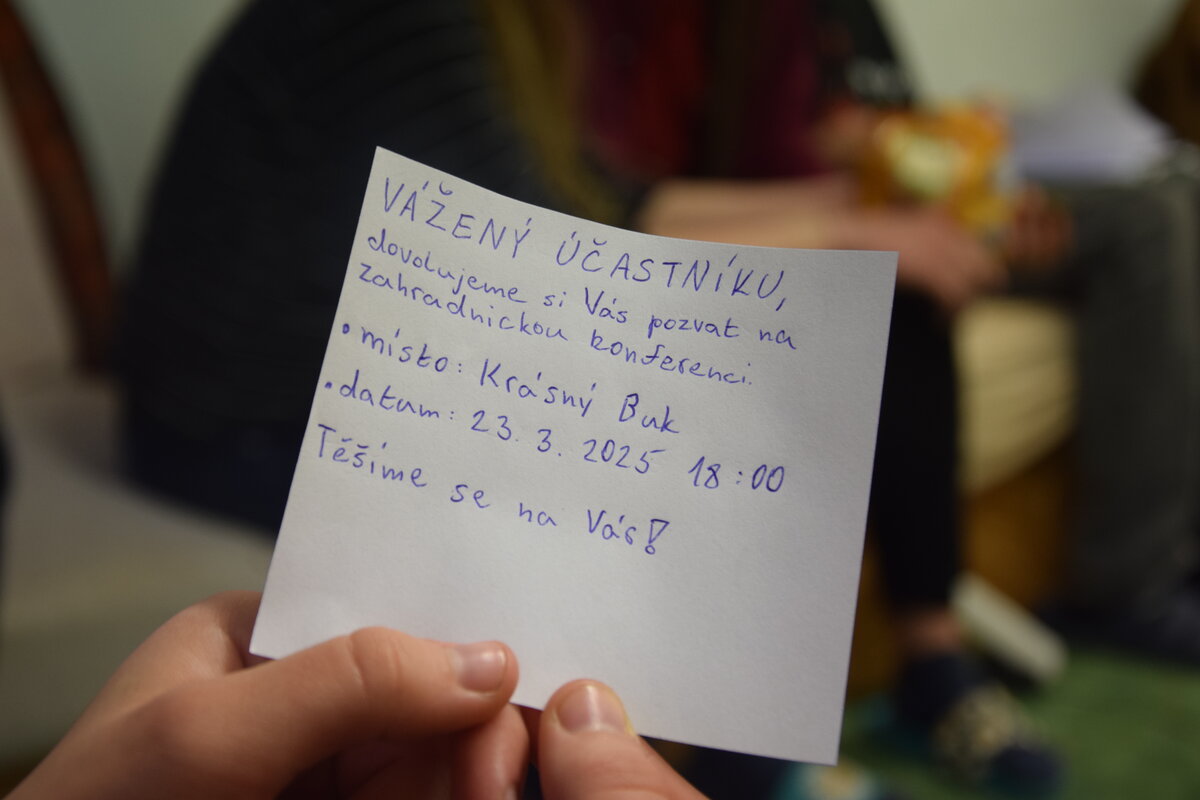 VÁŽENÝ ÚČASTNÍKU,
dovolujeme si Vás pozvat na
zahradnickou konferenci.
• místo: Krásný Buk
• datum: 23. 3. 2025 18:00
Těšíme se na Vás!